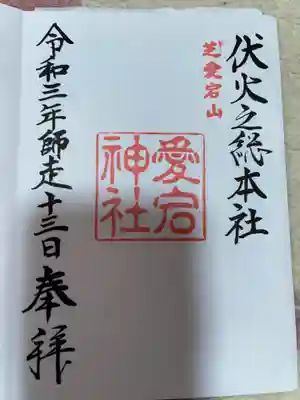 伏火之総本社
芝愛宕山
愛宕
神社
令和三年師走十三日奉拝